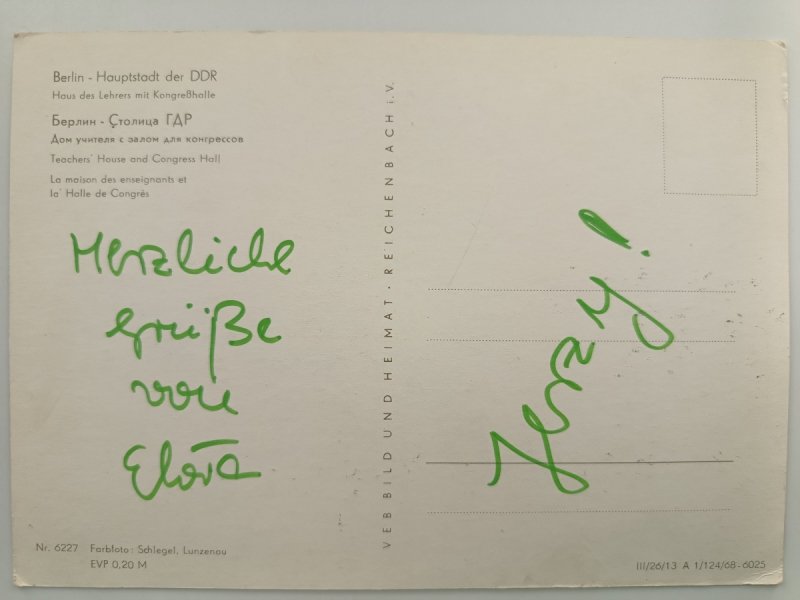 Berlin - Hauptstadt der DDR
Haus des Lehrers mit Kongreßhalle
Берлин - Столица ГДР
Дом учителя с залом для конгрессов
Teachers' House and Congress Hall
La maison des enseignants et
la' Halle de Congrès
Herzliche
Grüße
von
Nr. 6227 Farbfoto: Schlegel, Lunzenau
EVP 0,20 M
VEB BILD UND HEIMAT · REICHENBACH i. V.
Jerzy!
III/26/13 A 1/124/68-6025